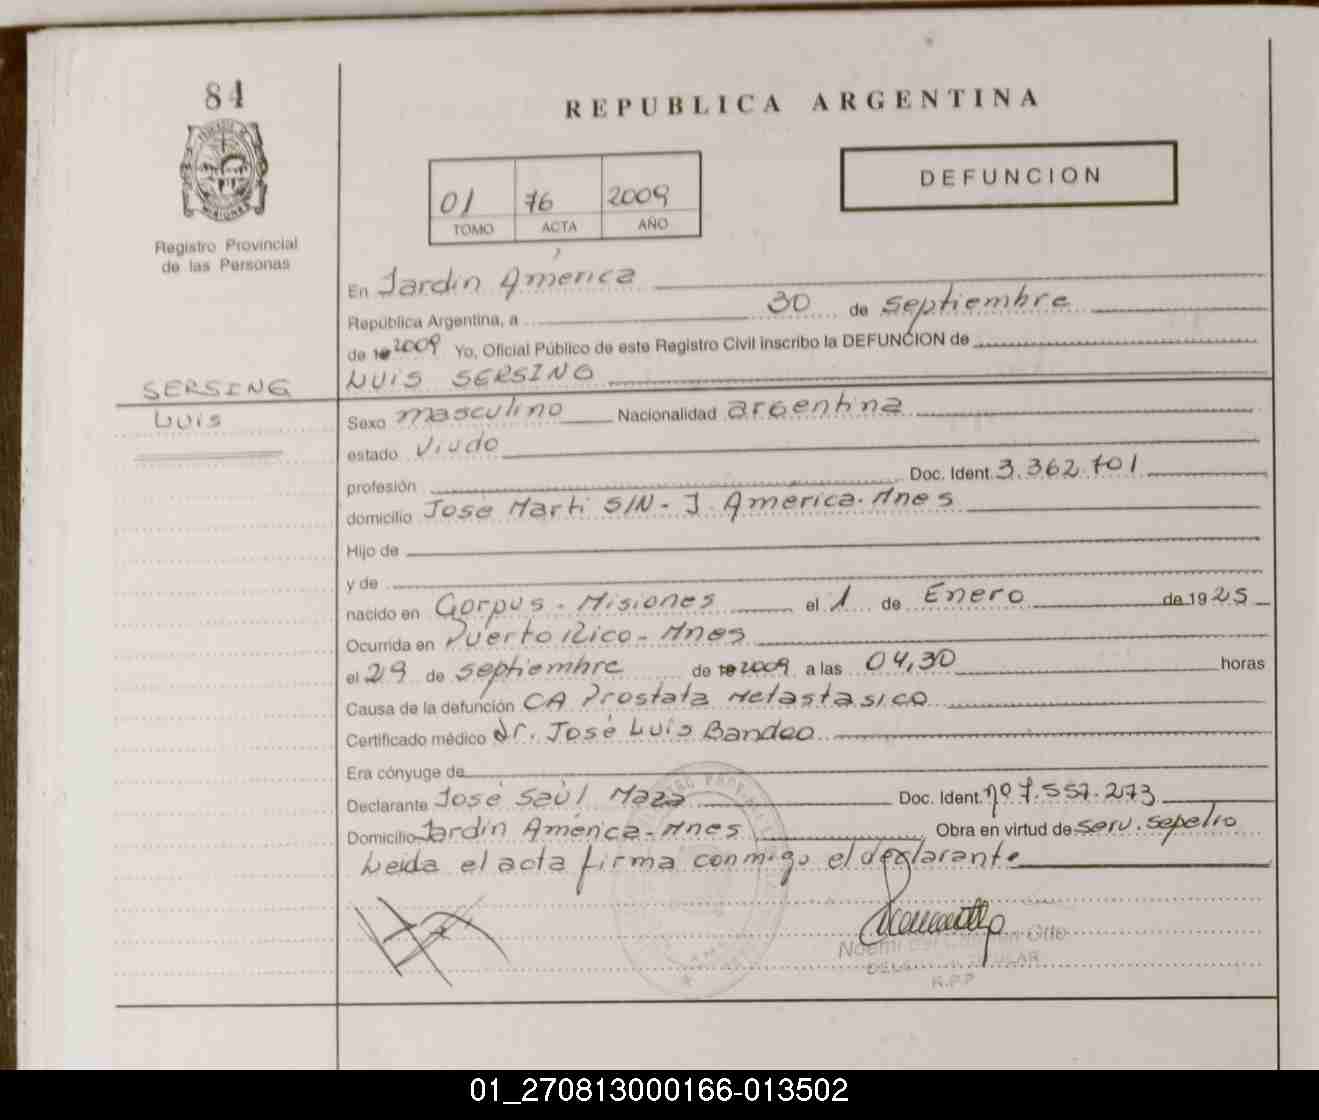 84
REPUBLICA ARGENTINA
DEFUNCION
01 76 2009
TOMO ACTA AÑO
Registro Provincial
de las Personas
En Jardín América
República Argentina, a 30 de septiembre
de 19 2009 Yo, Oficial Público de este Registro Civil inscribo la DEFUNCION de
SERSING LUIS SERSING
Luis
Sexo masculino Nacionalidad argentina
estado Viudo
profesión Doc. Ident. 3.362.701
domicilio José Martí S/N - J. América. Mnes
Hijo de
y de
nacido en Corpus - Misiones el 1 de Enero de 1925
Ocurrida en Puerto Rico - Mnes
el 29 de septiembre de 19 2009 a las 04,30 horas
Causa de la defunción CA Prostata Metastasico
Certificado médico dr. José Luis Bandeo
Era cónyuge de
Declarante José Saúl Maza Doc. Ident. nº 7.557.273
Domicilio Jardín América - Mnes Obra en virtud de serv. sepelio
Leida el acta firma conmigo el declarante
Noemi del Otto
TITULAR
R.P.P
01_270813000166-013502